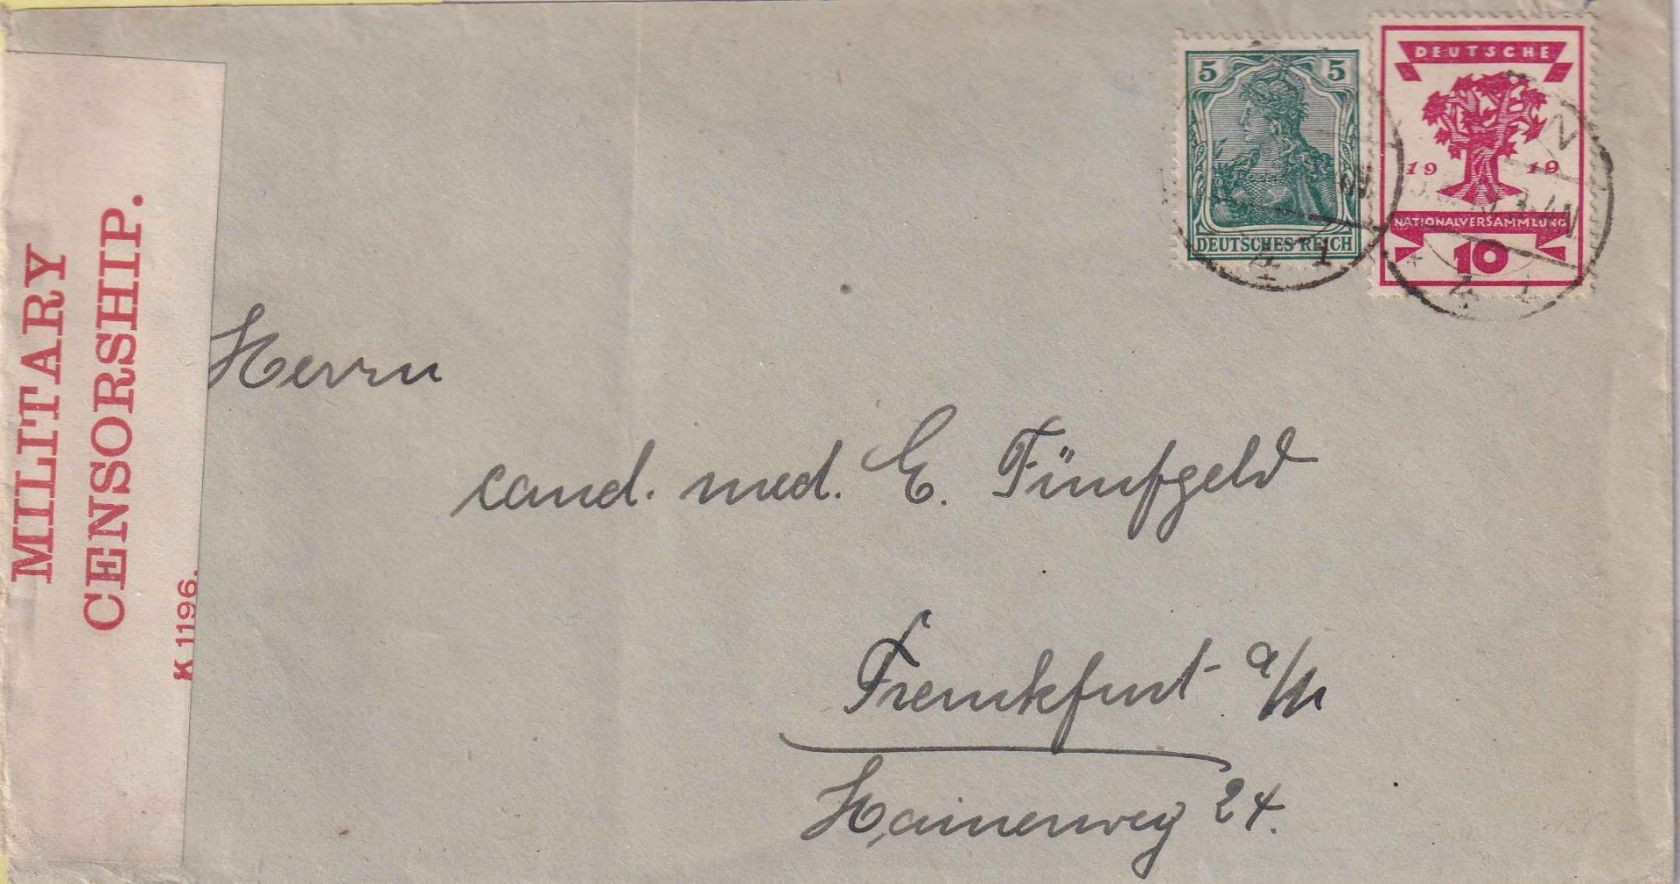 MILITARY
CENSORSHIP.
K 1196.
5 5
DEUTSCHES REICH
DEUTSCHE
19 19
NATIONALVERSAMMLUNG
10
Herrn
cand. med. E. Fünfgeld
Frankfurt a/M
Hainerweg 24.